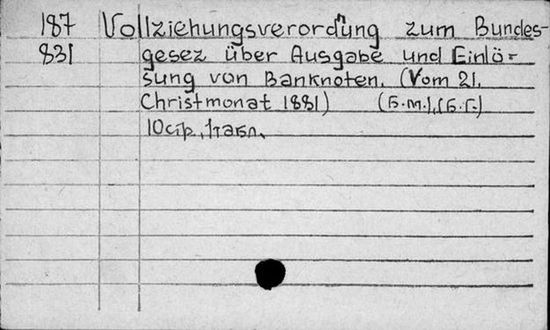 187 Vollziehungsverord'ung zum Bundes-
831 gesez über Ausgabe und Einlö=
sung von Banknoten. (Vom 21.
Christmonat 1881) (Б.м.),(Б.г.)
10стр., 1табл.